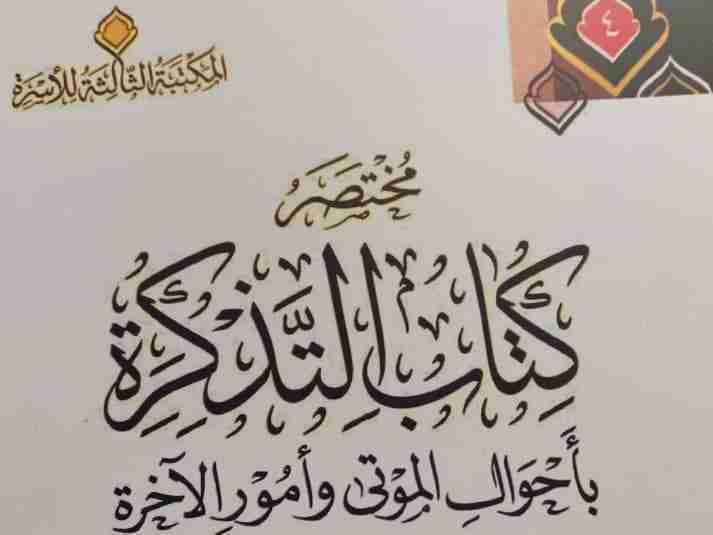 ٤
المكتبة الثالثة للأسرة
مُخْتَصَرُ
كِتَابِ التَّذْكِرَةِ
بِأَحْوَالِ الْمَوْتَى وَأُمُوْرِ الآخِرَةِ